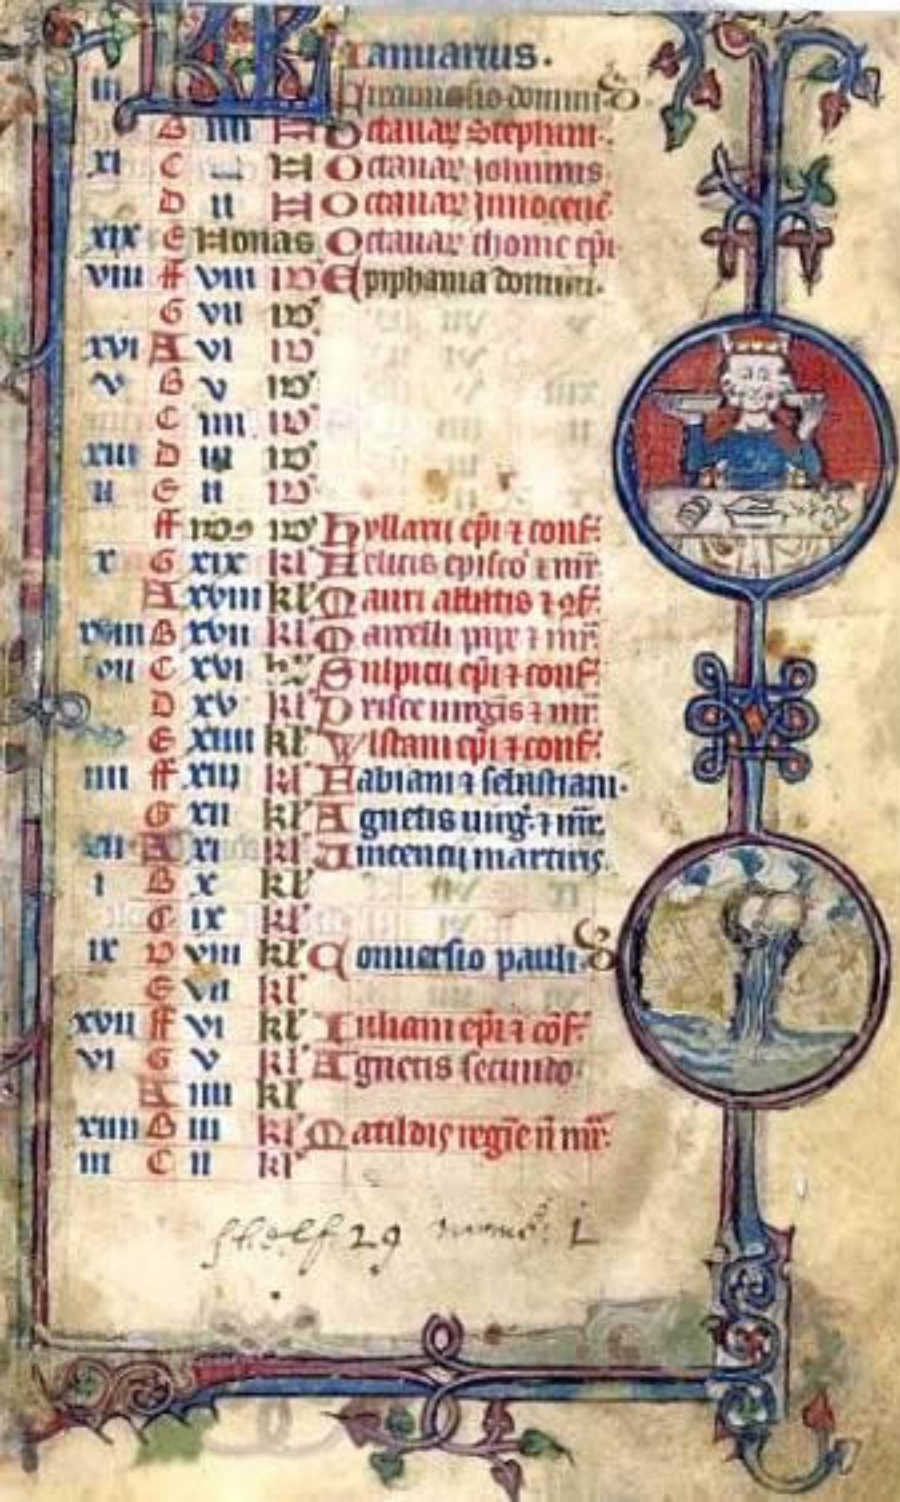 KL Ianuarius.
iii Circumcisio domini
B iiii N Octauaꝝ Stephani.
xi C N Octauaꝝ Johannis
D ii N Octauaꝝ Innocenc̄
xix E Nonas Octauaꝝ thome ep̄i
viii ff viii ID Epiphania domini.
G vii ID
xvi A vi ID
v B v ID
C iiii ID
xiii D iii ID
ii E ii ID
ff ID9 ID hyllarii ep̄i ⁊ conf.
x G xix kl Felicis ep̄isco ⁊ mr̄
A xviii kl Mauri abbatis ⁊ 9f.
xviii B xvii kl Marcelli pape ⁊ mr̄.
vii C xvi kl Sulpicii ep̄i ⁊ conf.
D xv kl Prisce uirgīs ⁊ mr̄.
E xiiii kl Wlstani ep̄i ⁊ conf.
iiii ff xiii kl Fabiani ⁊ sebastiani.
G xii kl Agnetis uirḡ. ⁊ mr̄.
xii A xi kl Uincencij martiris.
i B x kl
C ix kl
ix D viii kl Conuersio pauli.
E vii kl
xvii ff vi kl Iuliani ep̄i ⁊ cōf.
vi G v kl Agnetis secundo.
A iiii kl
xiiii B iii kl Matildis regīe n̄ mr̄.
iii C ii kl
Shelf. 29 num: 1